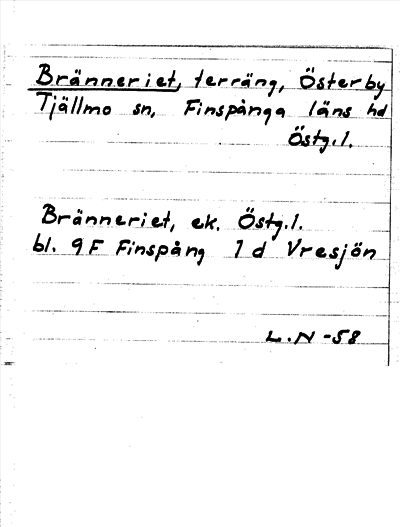 Bränneriet, terräng, Österby
Tjällmo sn, Finspånga läns hd
Östg.l.
Bränneriet, ek. Östg.l.
bl. 9F Finspång 1d Vresjön
L.N -58